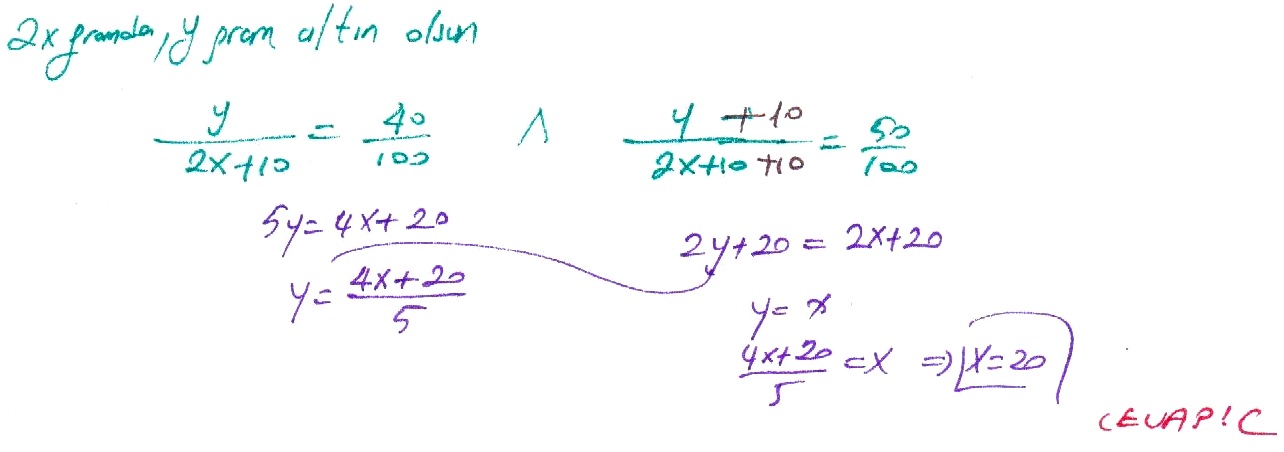 2x gramda, y gram altın olsun
y / (2x+10) = 40/100 ∧ (y +10) / (2x+10 +10) = 50/100
5y = 4x + 20
2y + 20 = 2x + 20
y = (4x + 20) / 5
y = x
(4x + 20) / 5 = x ⇒ x = 20
CEVAP! C